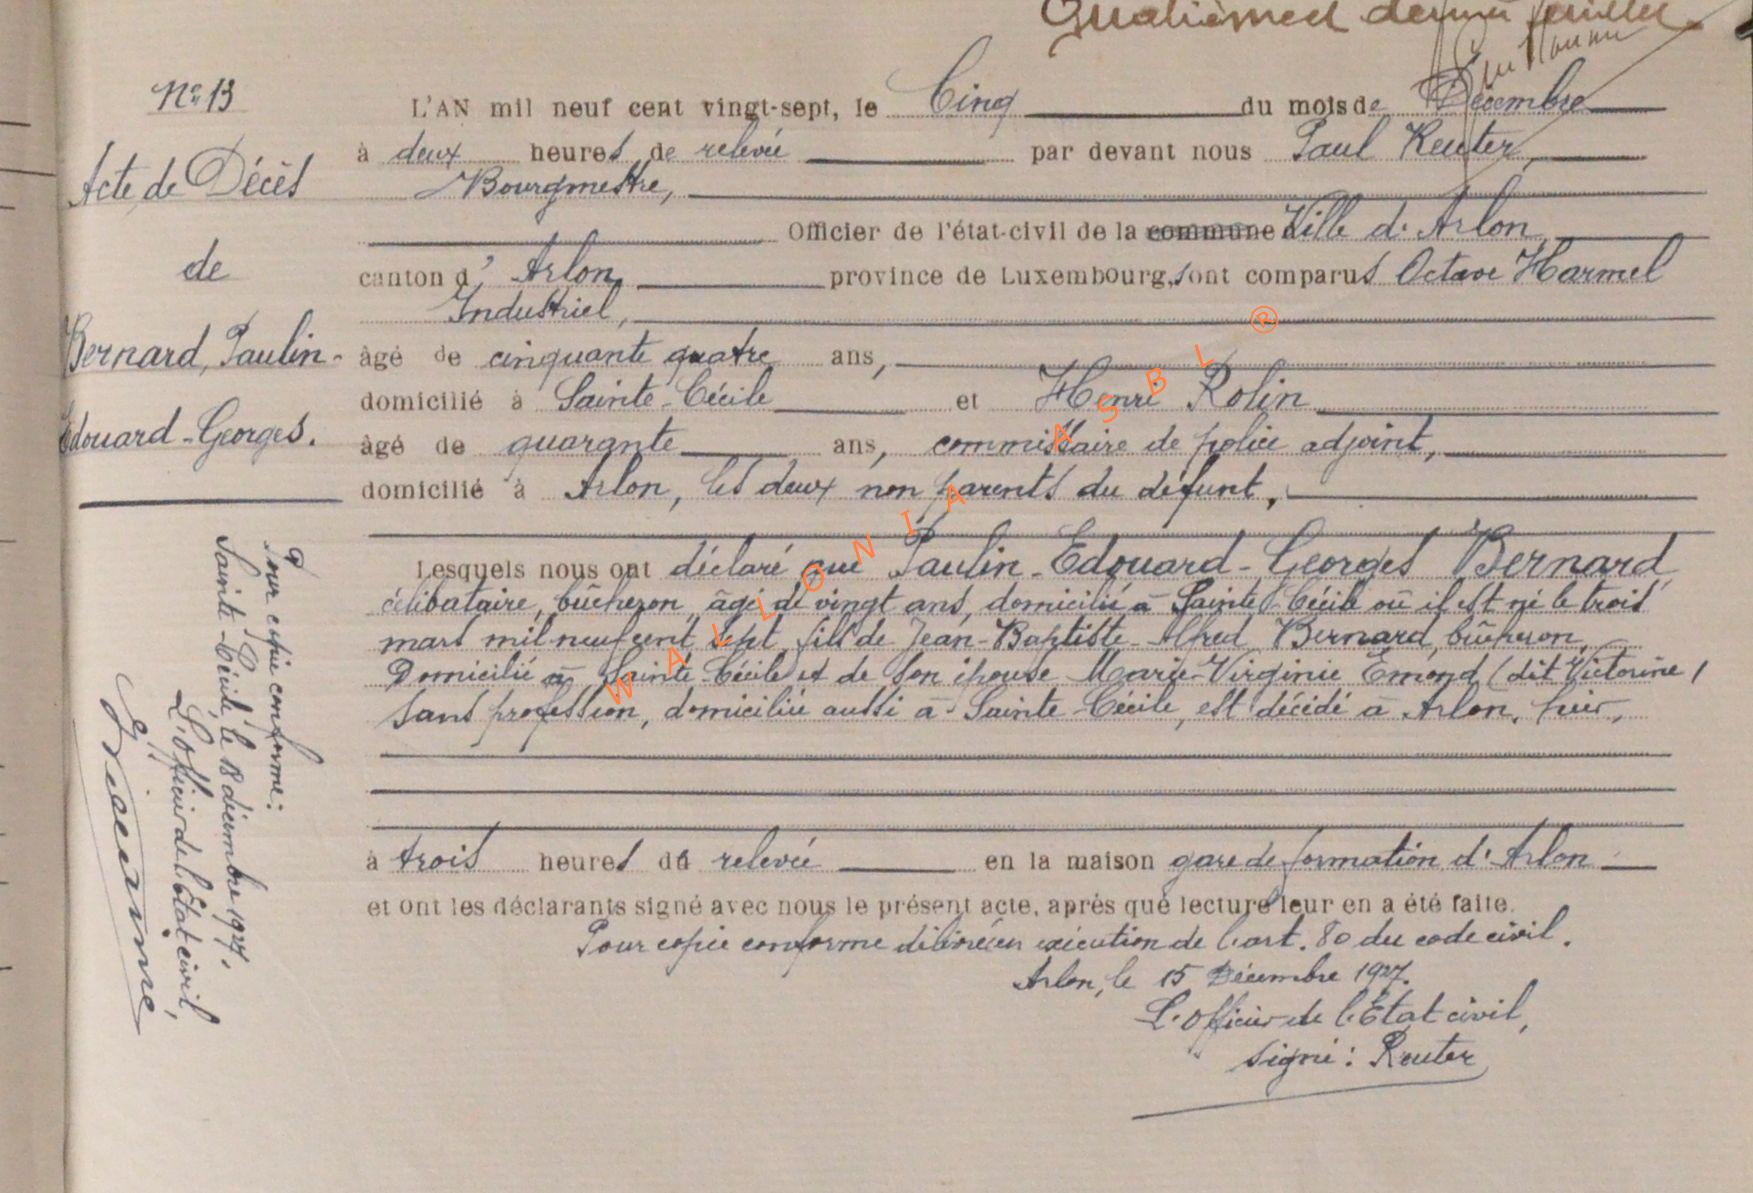 Quatrième et dernier feuillet
N° 13
Acte de Décès
de
Bernard, Paulin-
Edouard-Georges.
L'AN mil neuf cent vingt-sept, le Cinq du mois de Décembre
à deux heures de relevée par devant nous Paul Reuter,
Bourgmestre,
Officier de l'état-civil de la commune Ville d'Arlon,
canton d'Arlon, province de Luxembourg, sont comparus Octave Harmel
Industriel,
âgé de cinquante quatre ans,
domicilié à Sainte-Cécile et Henri Rolin
âgé de quarante ans, commissaire de police adjoint,
domicilié à Arlon, les deux non parents du défunt,
Lesquels nous ont déclaré que Paulin-Edouard-Georges Bernard
célibataire, bûcheron, âgé de vingt ans, domicilié à Sainte-Cécile où il est né le trois
mars mil neuf cent sept, fils de Jean-Baptiste-Alfred Bernard, bûcheron,
Domicilié à Sainte-Cécile et de son épouse Marie-Virginie Emond (dit Victorine)
sans profession, domiciliée aussi à Sainte-Cécile, est décédé à Arlon, hier,
à trois heures de relevée en la maison gare de formation d'Arlon
et ont les déclarants signé avec nous le présent acte, après que lecture leur en a été faite.
Pour copie conforme délivrée en exécution de l'art. 80 du code civil.
Arlon, le 15 Décembre 1927.
L'officier de l'Etat civil,
signé : Reuter
Pour copie conforme:
Sainte-Cécile, le 18 décembre 1927,
L'officier de l'Etat civil,
WALLONIA ASBL ®